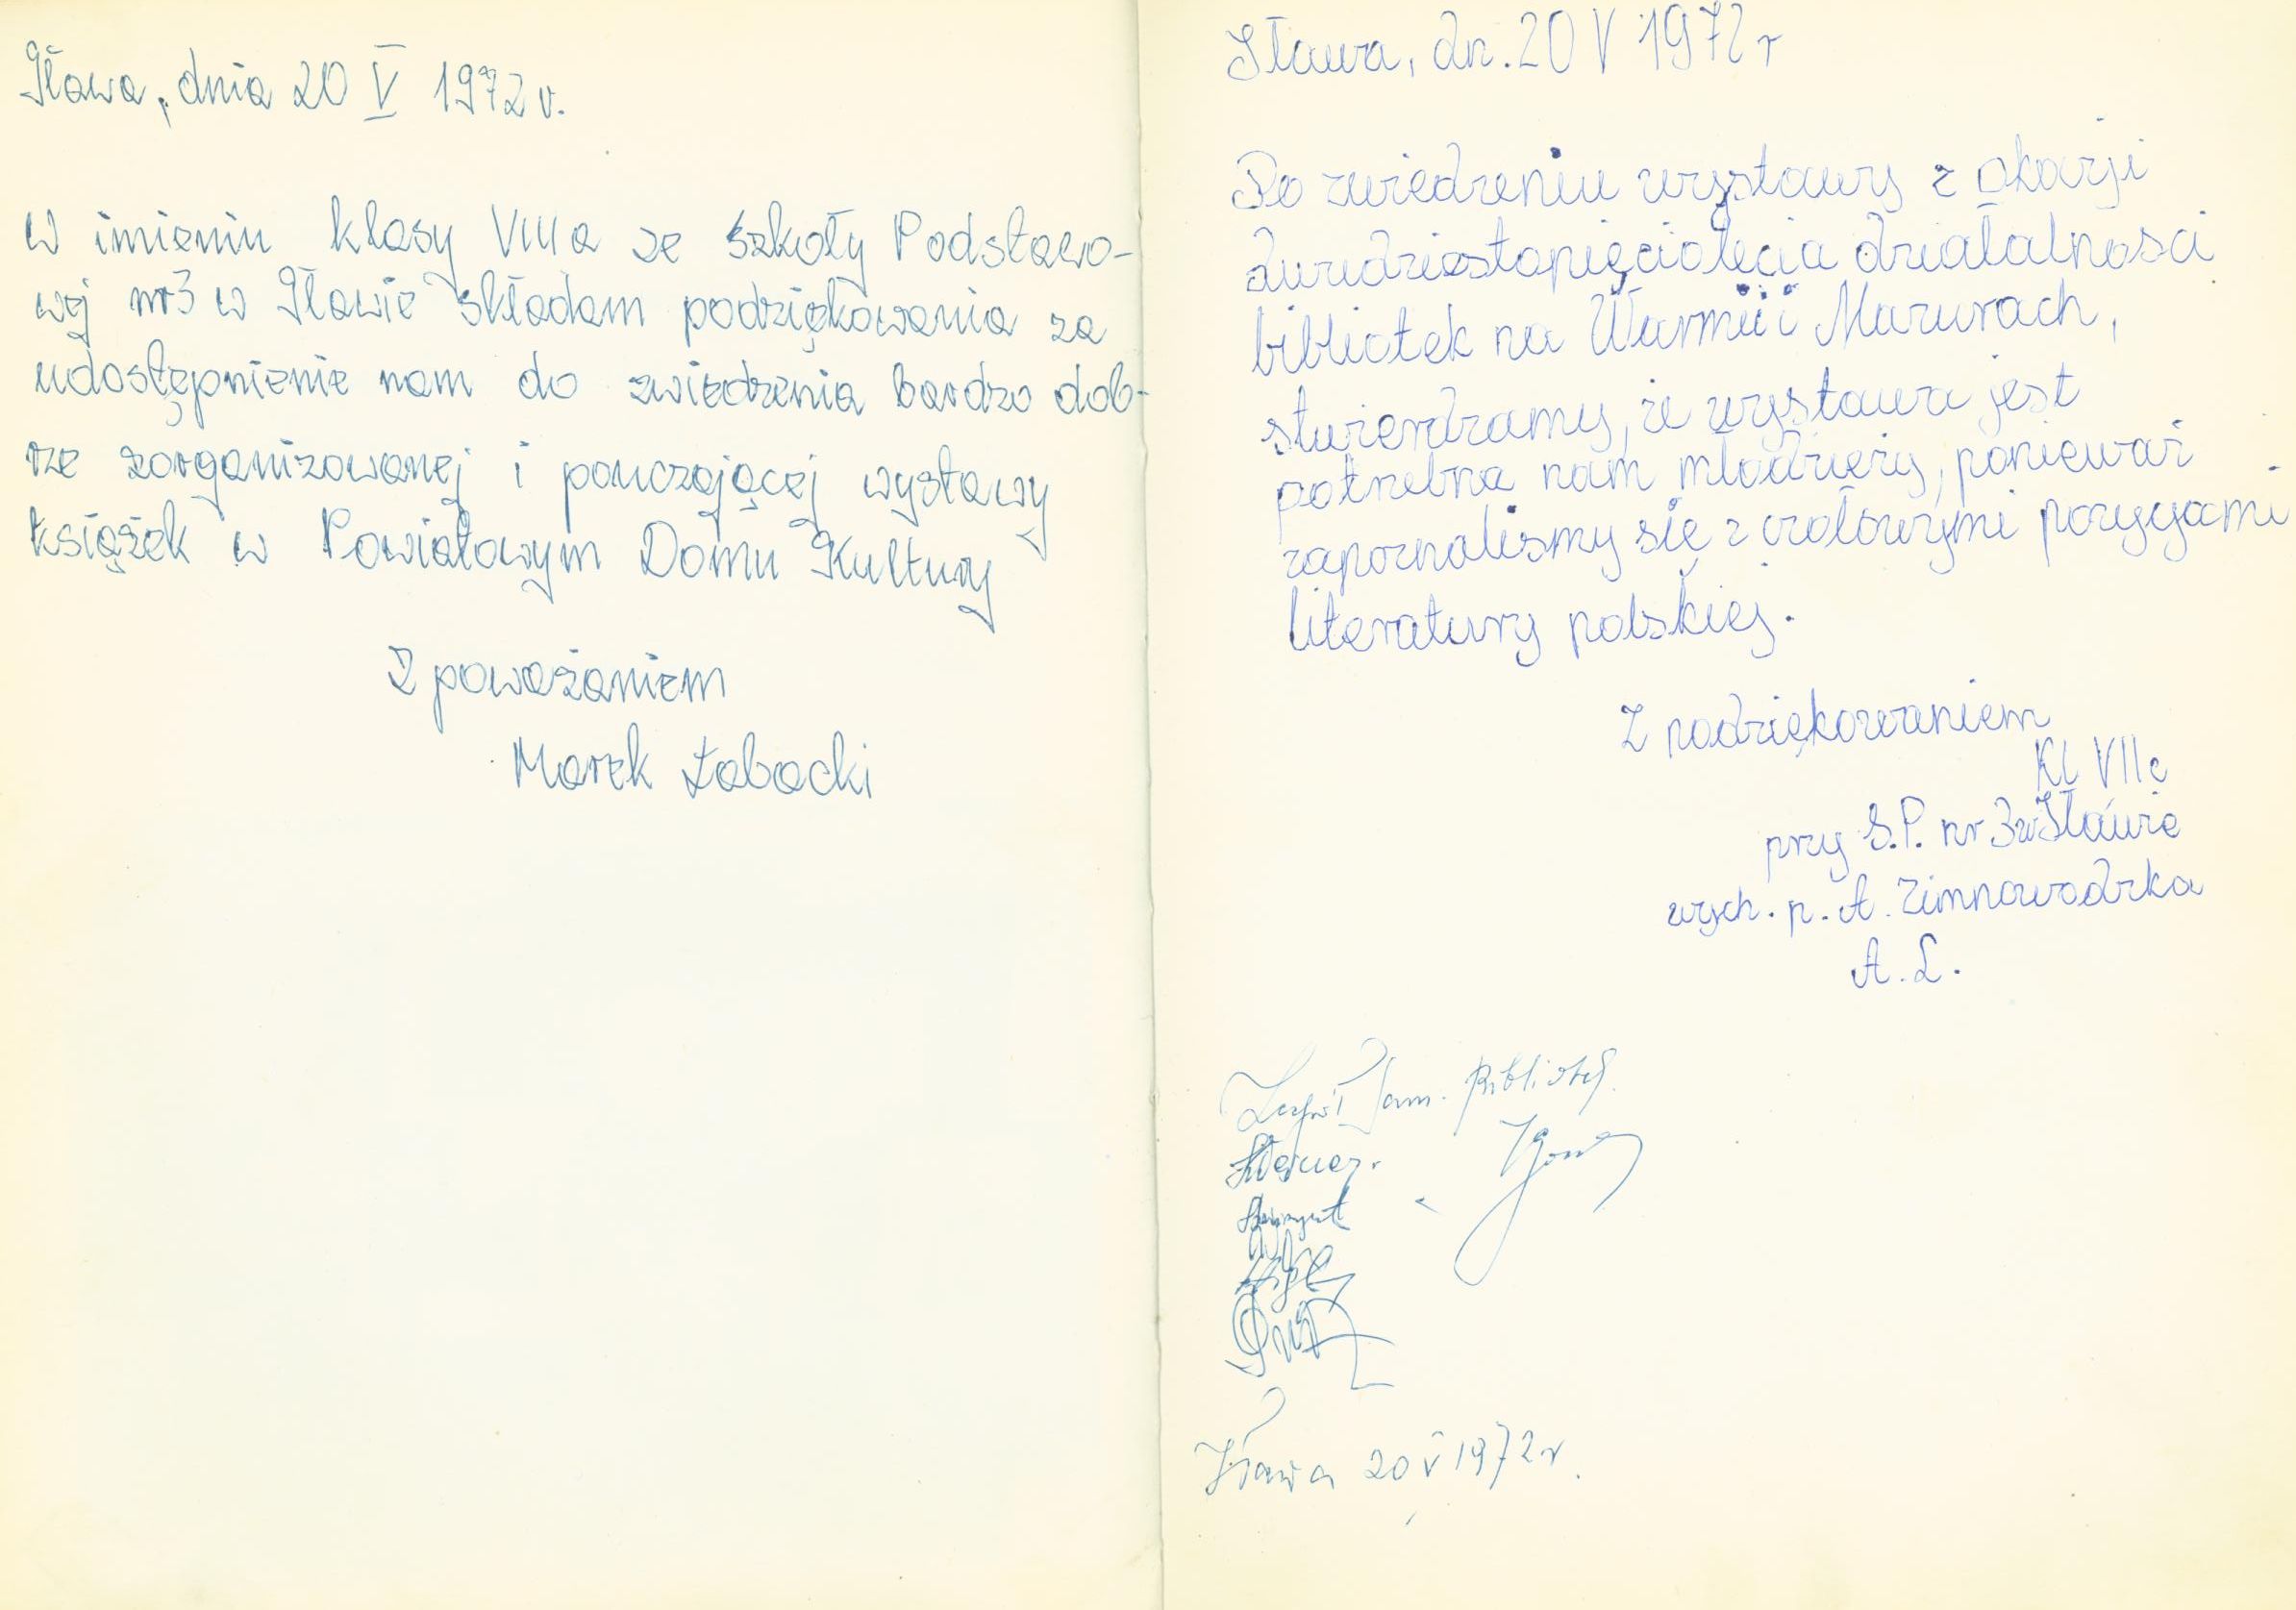 Iława, dnia 20 V 1972 r.
W imieniu klasy VIII a ze Szkoły Podstawo-
wej nr 3 w Iławie składam podziękowania za
udostępnienie nam do zwiedzenia bardzo dob-
rze zorganizowanej i pouczającej wystawy
książek w Powiatowym Domu Kultury
Z poważaniem
Marek Łabacki
Iława, dn. 20 V 1972 r
Po zwiedzeniu wystawy z okazji
dwudziestopięciolecia działalności
bibliotek na Warmii i Mazurach,
stwierdzamy, że wystawa jest
potrzebna nam młodzieży, ponieważ
zapoznaliśmy się z czołowymi pozycjami
literatury polskiej.
Z podziękowaniem
Kl VII c
przy S.P. nr 3 w Iławie
wych. p. A. Zimnowodzka
A. L.
Iława 20 V 1972 r.